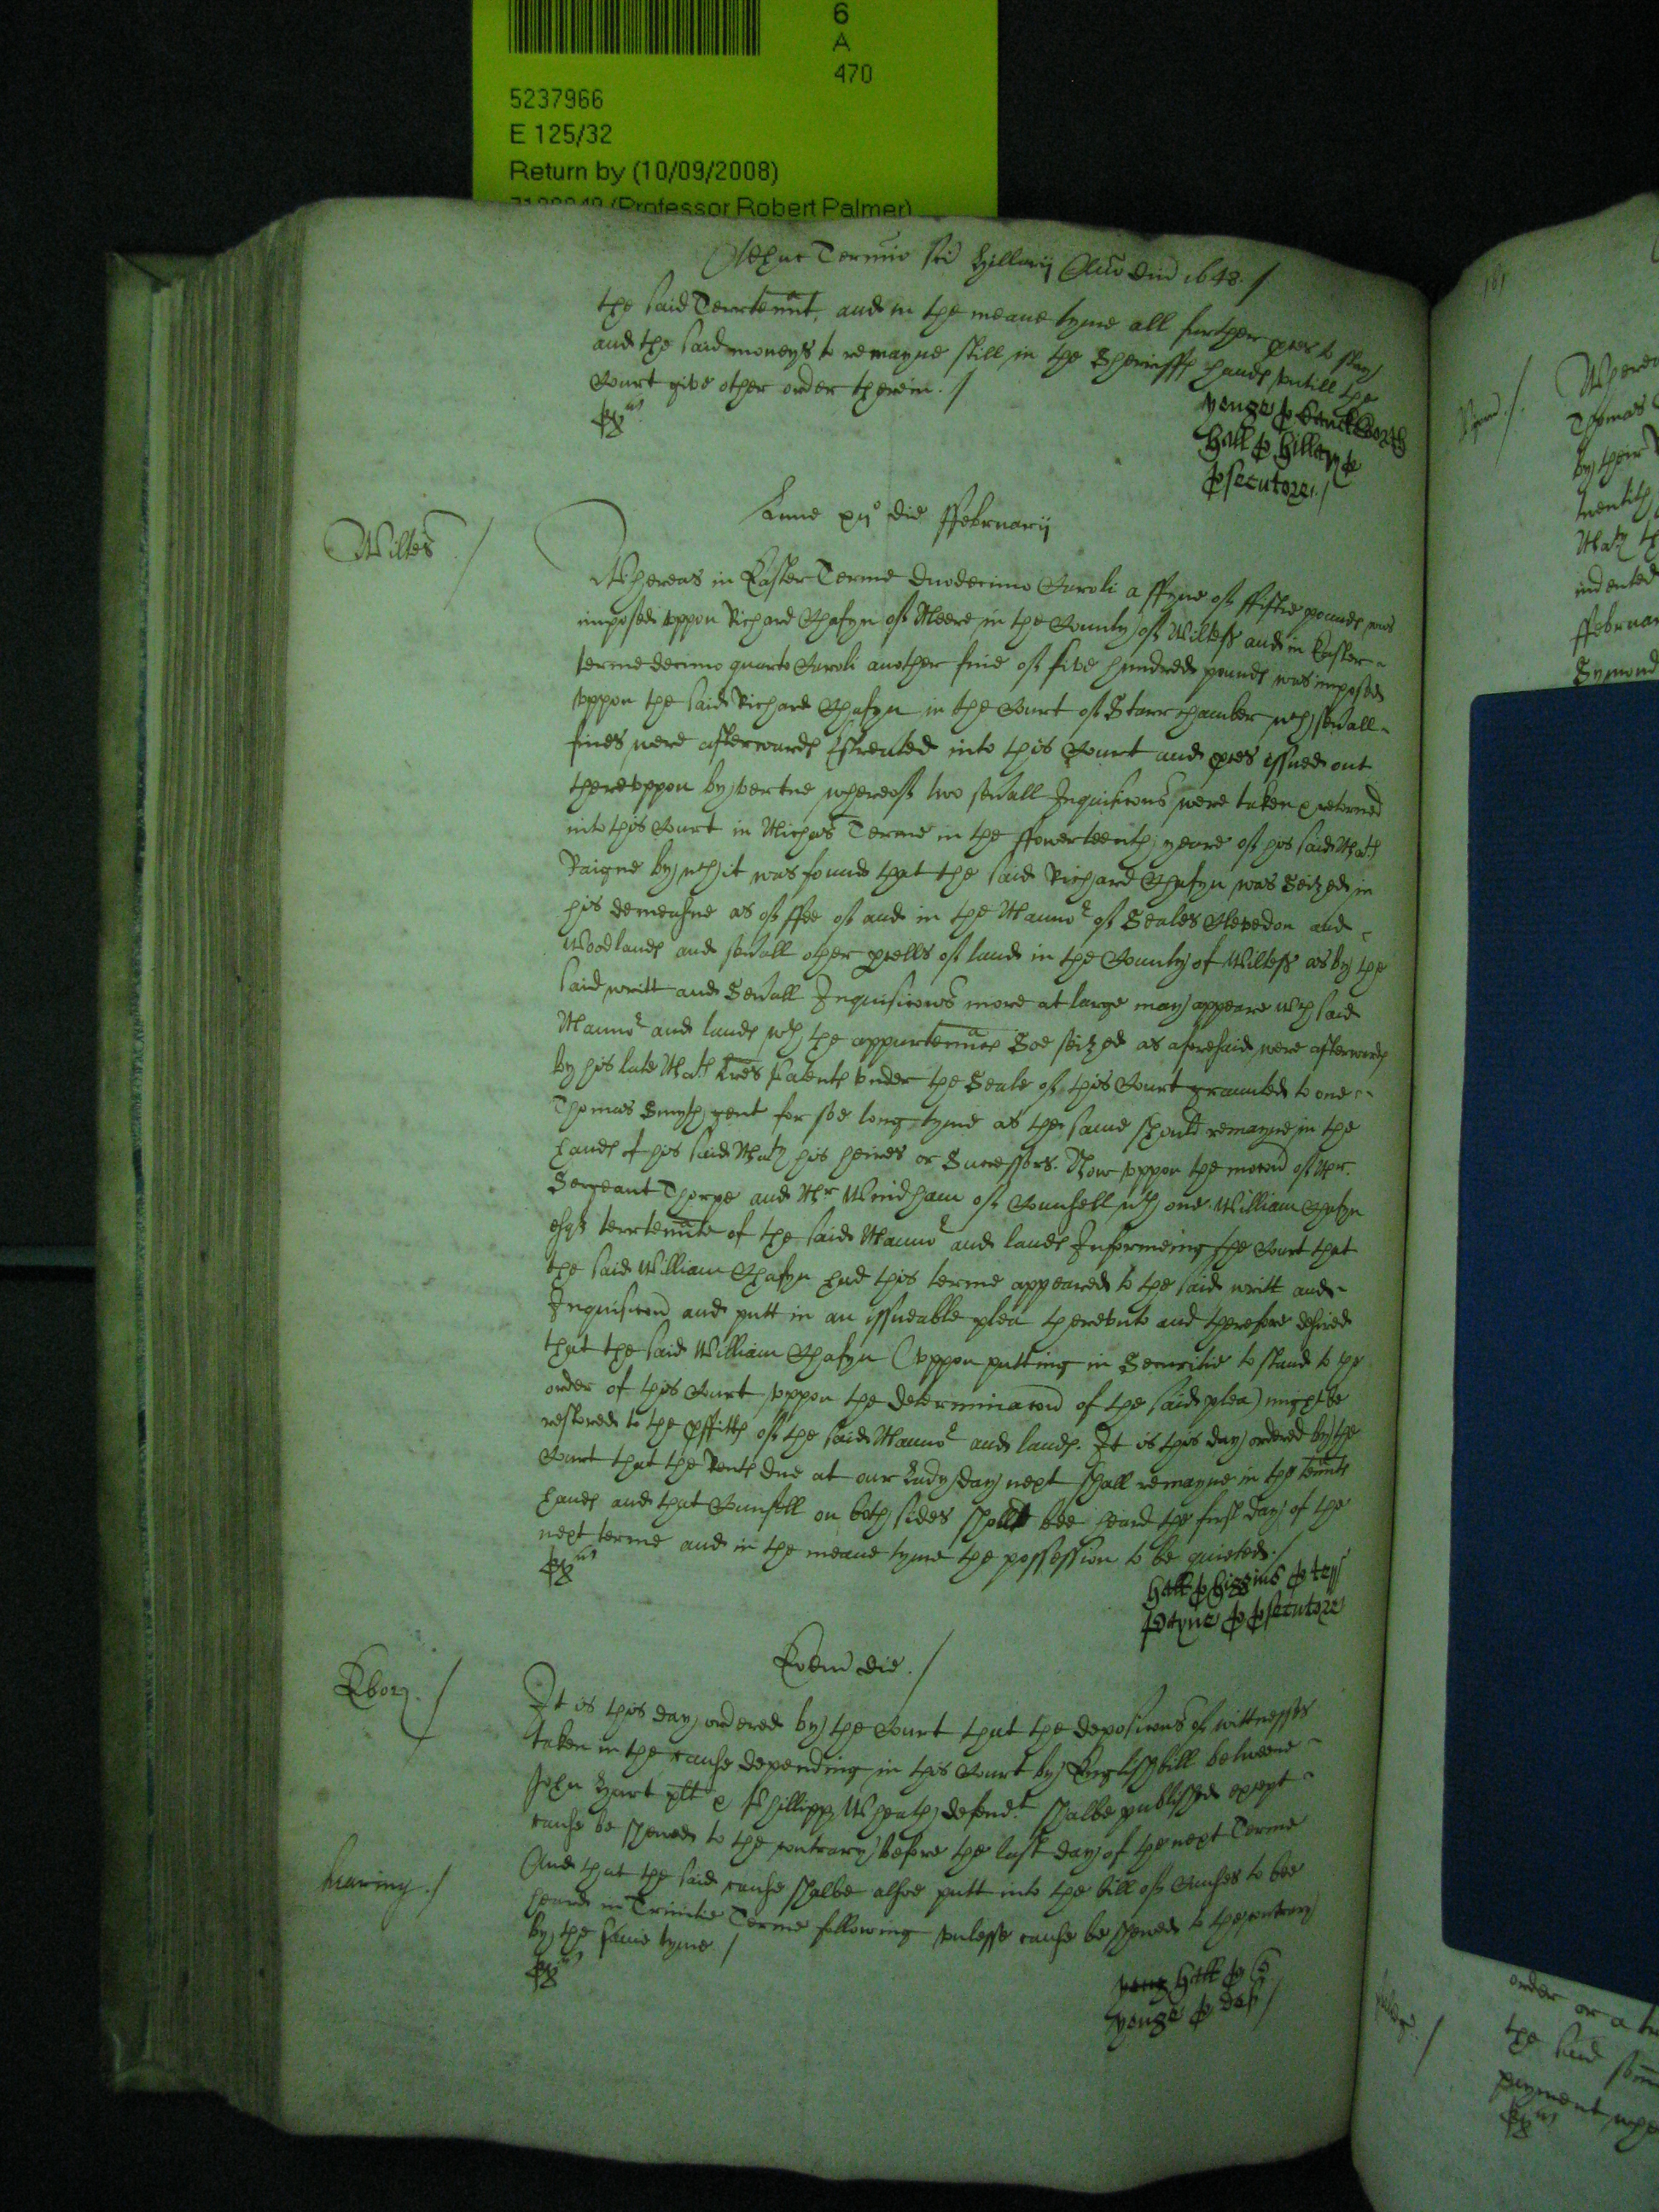 6
A
470
5237966
E 125/32
Return by (10/09/2008)
(Professor Robert Palmer)
Adhuc Termino sci Hillarij Anno dni 1648. /
the said Terrtennt, and in the meane tyme all further pces to stay
and the said moneys to remayne still in the Sheriffs hands untill the
Court give other order therein. /
yonge p
Hall p Hillary p
psecutore. /
Lune xijo die ffebruarij
Wiltes /
Whereas in Easter Terme duodecimo Caroli a ffyne of ffiftie pounds was
imposed uppon Richard Chafyn of Meere in the County of Wiltess and in Easter
terme decimo quarto Caroli another fine of five hundred pounds was imposed
uppon the said Richard Chafyn in the Court of Starr chamber wch sevall
fines were afterwards estreated into this Court and pces issued out
thereuppon by vertue whereof two sevall Inquisicons were taken & retorned
into this Court in Michas Terme in the ffowerteenth yeare of his said Mats
Raigne by wch it was found that the said Richard Chafyn was Seized in
his demeasne as of ffee of and in the Manno2 of Seales Clevedon and
Woodlands and sevall other pcells of land in the County of Wiltess as by the
said writt and Sevall Inquisicons more at large may appeare wch said
Manno2 and lands wth the appurtennces Soe seized as aforesaid were afterwards
by his late Mats Lres Patents under the Seale of this Court graunted to one
Thomas Smyth gent for soe long tyme as the same should remayne in the
hands of his said Maty his heires or Successors. Now uppon the mocon of Mr.
Sergeant Thorpe and Mr Windham of Counsell wth one William Chafyn
esqr terrtennte of the said Manno2 and lands Informeing the Court that
the said William Chafyn had this terme appeared to the said writt and
Inquisicon and putt in an issueable plea thereunto and therefore desired
that the said William Chafyn (uppon putting in Securitie to stand to the
order of this Court uppon the determinacon of the said plea) might be
restored to the pffitts of the said Manno2 and lands. It is this day ordered by the
Court that the Rents due at our Lady day next shall remayne in the tennts
hands and that Counsell on both sides shall bee heard the first day of the
next terme and in the meane tyme the possession to be quieted. /
Hall p Higgins p terr
payne p psecutore
Eodem die. /
Ebor. /
It is this day ordered by the Court that the deposicons of wittnesses
taken in the cause depending in this Court by English bill betweene
John Hart plt & Phillipp Wheath defendt. shalbe published except
cause be shewed to the contrary before the last day of the next Terme
hearing. /
And that the said cause shalbe alsoe putt into the bill of Causes to bee
heard in Trinitie Terme following unlesse cause be shewed to the contrary
by the same tyme /
yong Hall p Q
yonge p def /
Wherea
Thomas
by their
twentith
Maty th
indented
ffebruar
Symond
order or a
the said
payment